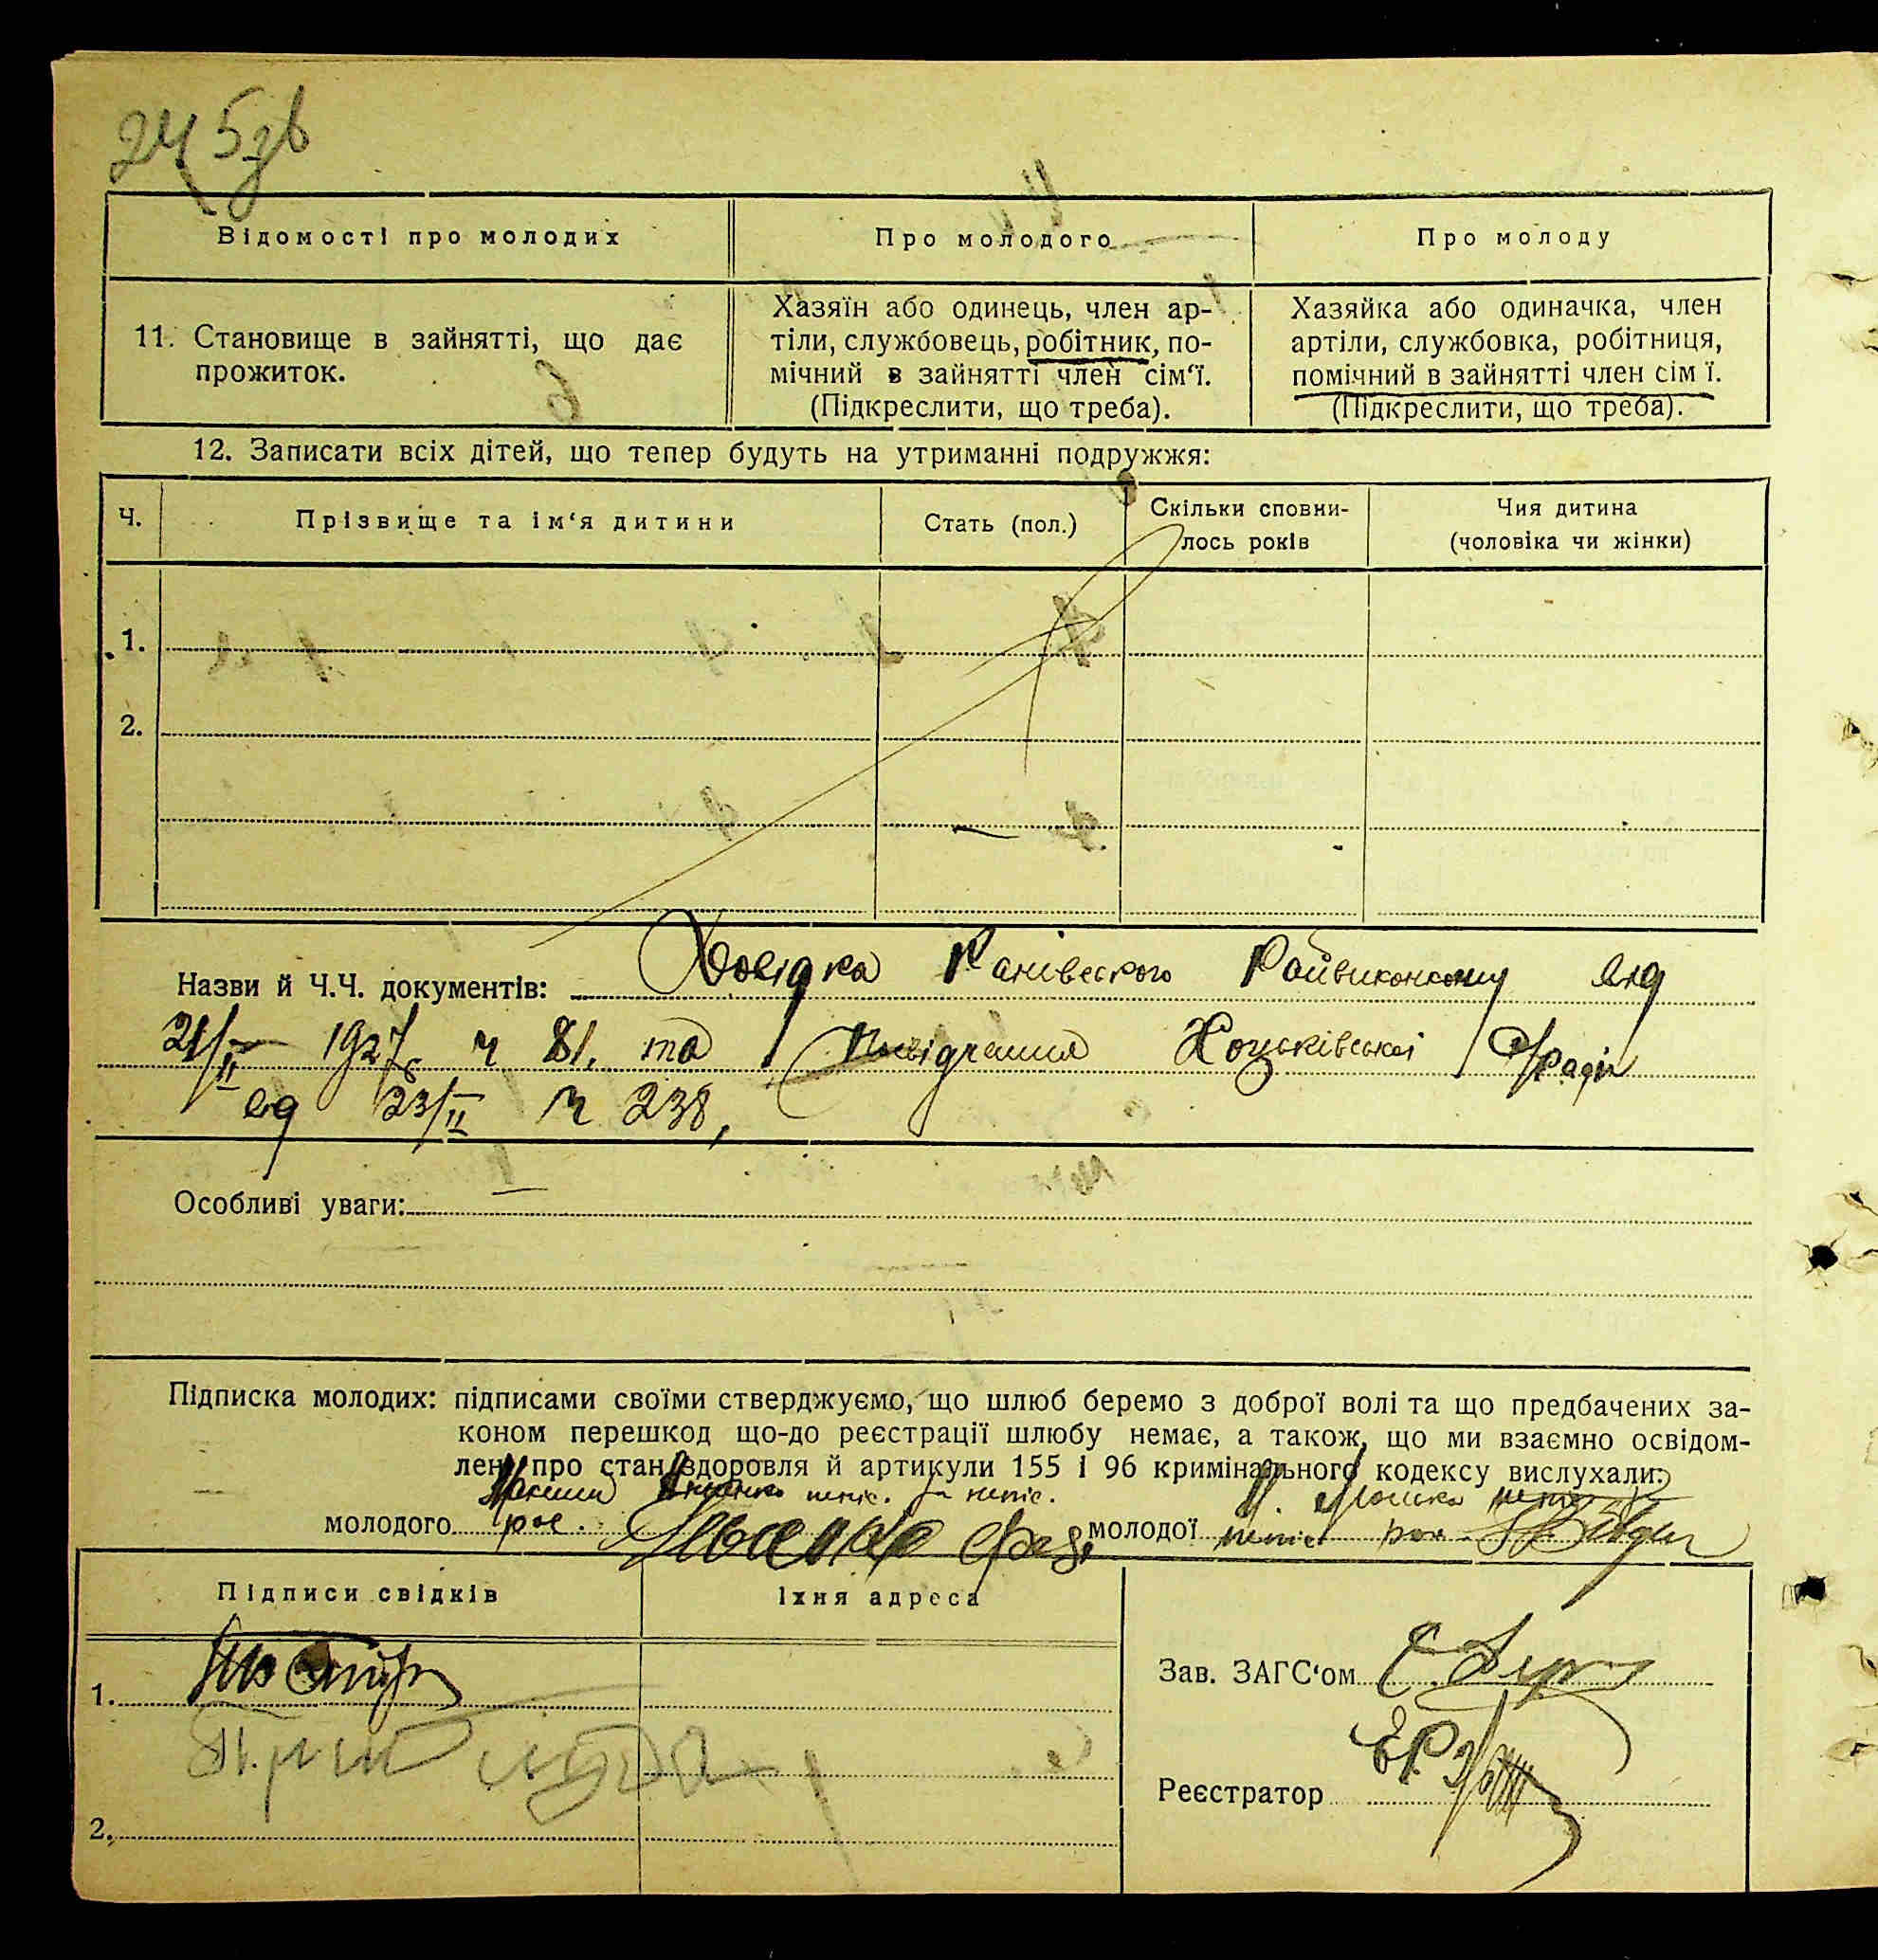 245зв
Відомості про молодих
Про молодого
Про молоду
11. Становище в зайнятті, що дає
прожиток.
Хазяїн або одинець, член ар-
тіли, службовець, робітник, по-
мічний в зайнятті член сім'ї.
(Підкреслити, що треба).
Хазяйка або одиначка, член
артіли, службовка, робітниця,
помічний в зайнятті член сім ї.
(Підкреслити, що треба).
12. Записати всіх дітей, що тепер будуть на утриманні подружжя:
Ч.
Прізвище та ім'я дитини
Стать (пол.)
Скільки сповни-
лось років
Чия дитина
(чоловіка чи жінки)
1.
2.
Назви й Ч.Ч. документів: Довідка Канівського Райвиконкому від
21/II 1927 ч 81, та Посвідчення Хоцьківської С/ради
від 23/II ч 238,
Особливі уваги:
Підписка молодих: підписами своїми стверджуємо, що шлюб беремо з доброї волі та що предбачених за-
коном перешкод що-до реєстрації шлюбу немає, а також, що ми взаємно освідом-
лені про стан здоровля й артикули 155 і 96 кримінального кодексу вислухали:
молодого
молодої
Підписи свідків
Їхня адреса
1.
2.
Зав. ЗАГС'ом
Реєстратор